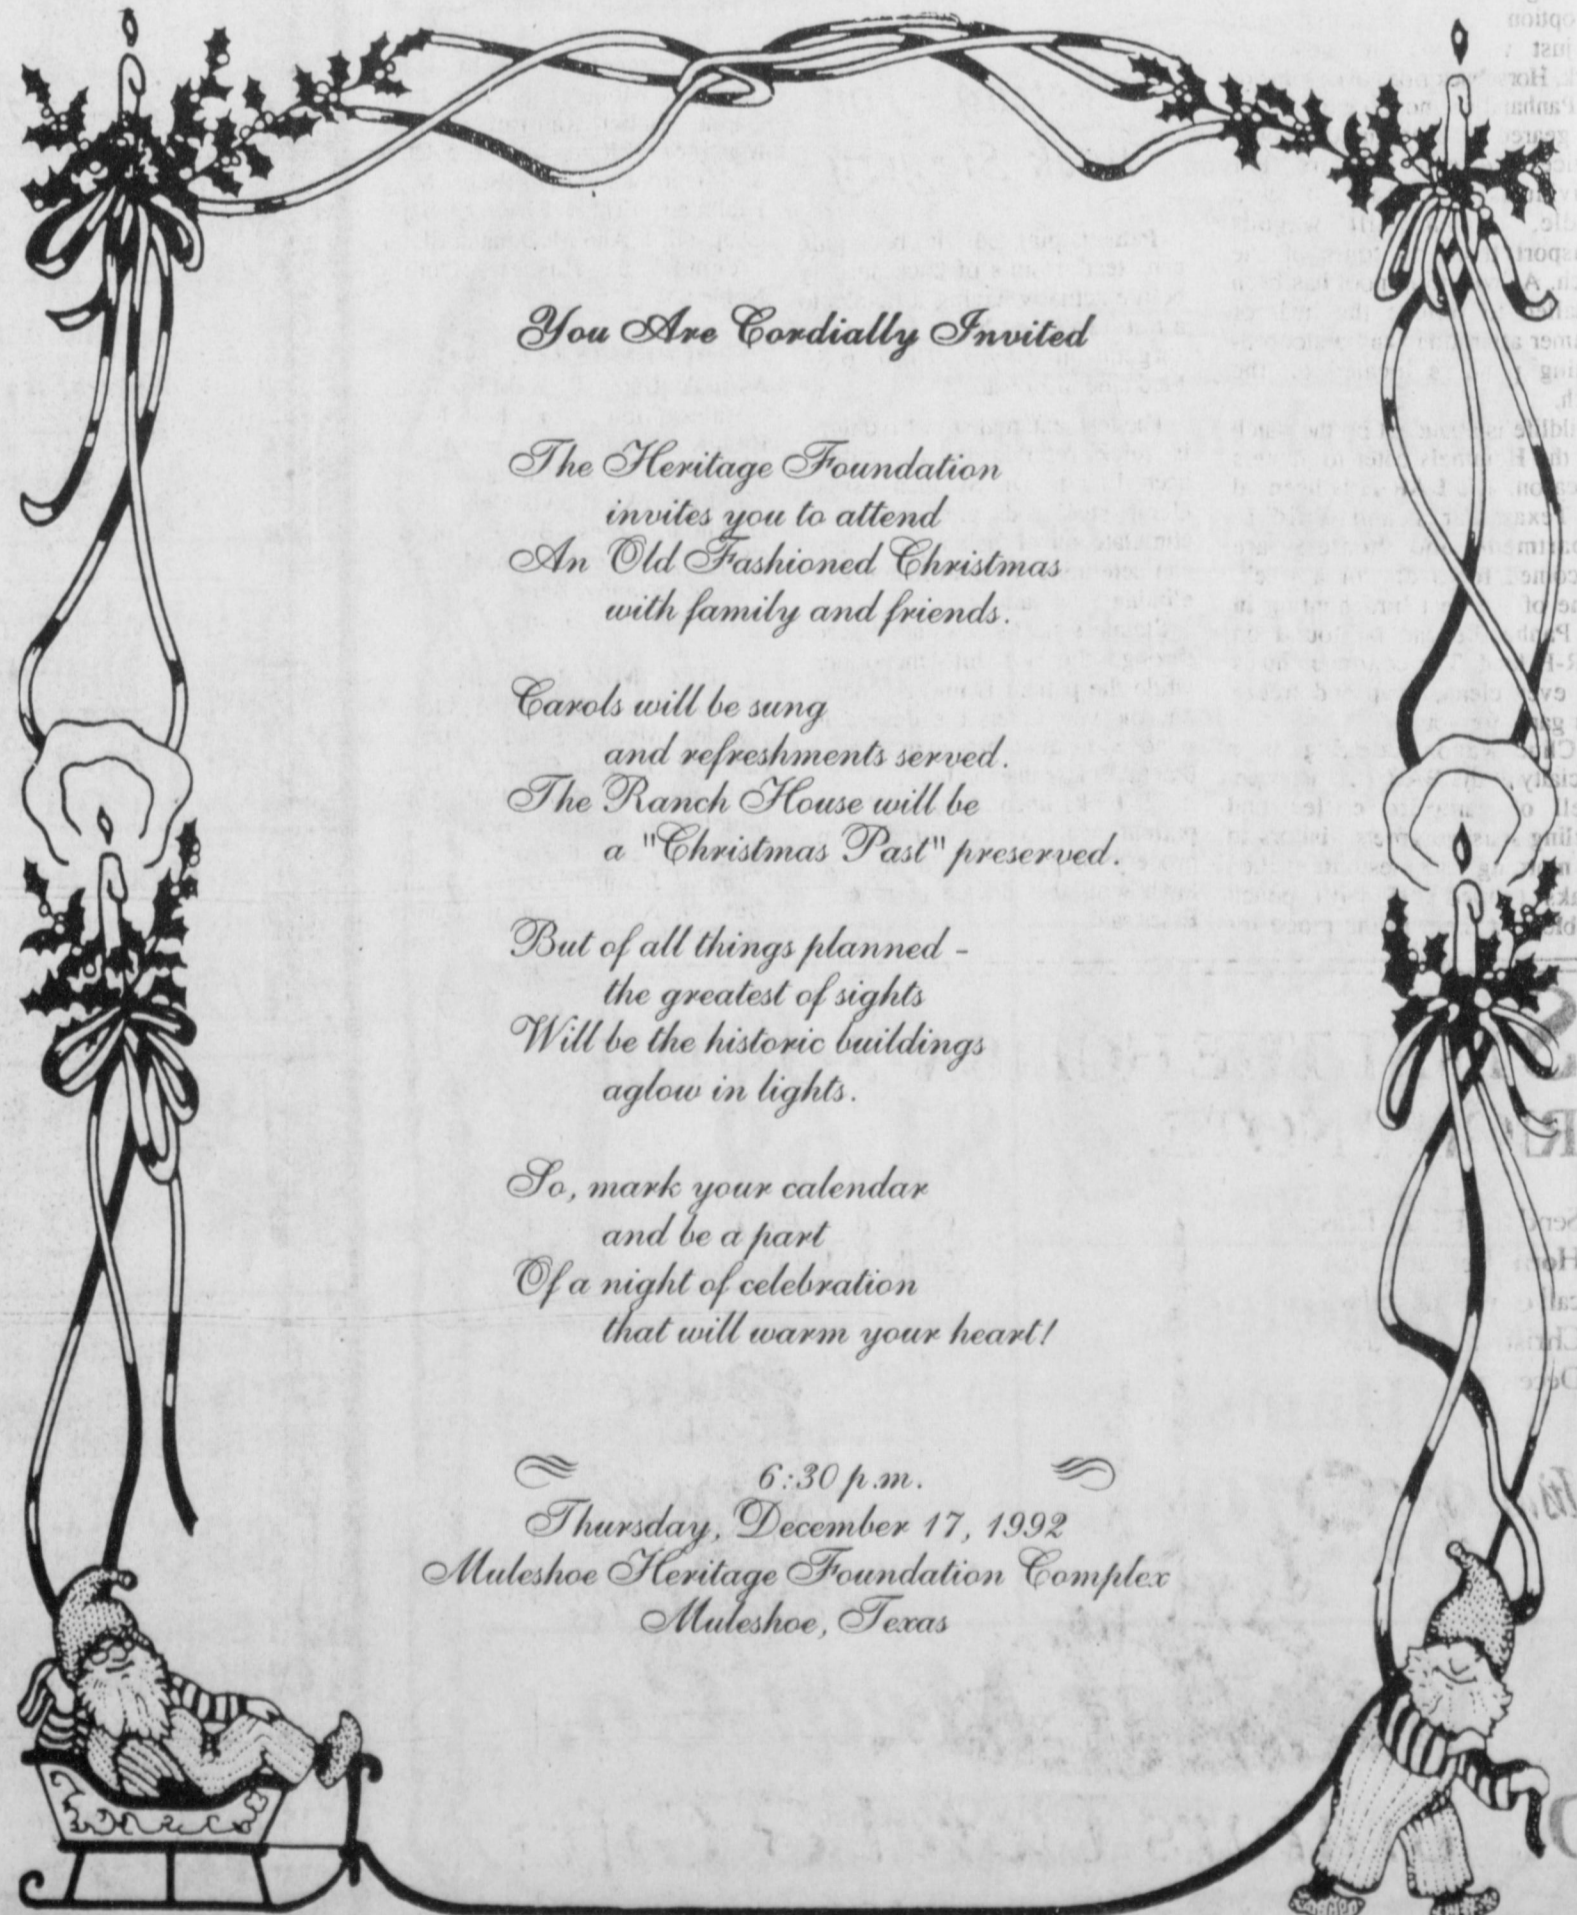 You Are Cordially Invited
The Heritage Foundation
invites you to attend
An Old Fashioned Christmas
with family and friends.
Carols will be sung
and refreshments served.
The Ranch House will be
a "Christmas Past" preserved.
But of all things planned -
the greatest of sights
Will be the historic buildings
aglow in lights.
So, mark your calendar
and be a part
Of a night of celebration
that will warm your heart!
6:30 p.m.
Thursday, December 17, 1992
Muleshoe Heritage Foundation Complex
Muleshoe, Texas